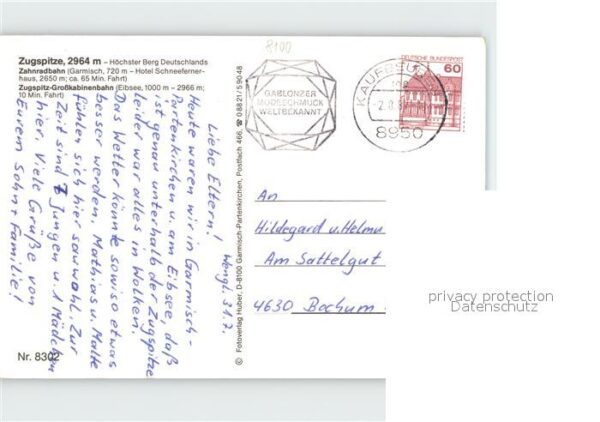 8100
Zugspitze, 2964 m – Höchster Berg Deutschlands
Zahnradbahn (Garmisch, 720 m – Hotel Schneeferner-
haus, 2650 m; ca. 65 Min. Fahrt)
Zugspitz-Großkabinenbahn (Eibsee, 1000 m – 2966 m;
10 Min. Fahrt)
Wengl. 31.7.
Liebe Eltern!
Heute waren wir in Garmisch-
Partenkirchen u. am Eibsee, daß
ist genau unterhalb der Zugspitze
leider war alles in Wolken.
Das Wetter könnte sowiso etwas
besser werden. Mathias u. Malte
fühlen sich hier sauwohl. Zur
Zeit sind 7 Jungen u. 1 Mädchen
hier. Viele Grüße von
Eurem Sohn + Familie!
Nr. 8302
© Fotoverlag Huber, D-8100 Garmisch-Partenkirchen, Postfach 466, ☎ 08821/59048
GABLONZER
MODESCHMUCK
WELTBEKANNT
KAUFBEU
8950
DEUTSCHE BUNDESPOST
60
An
Hildegard u. Helmu
Am Sattelgut
4630 Bochum
privacy protection
Datenschutz